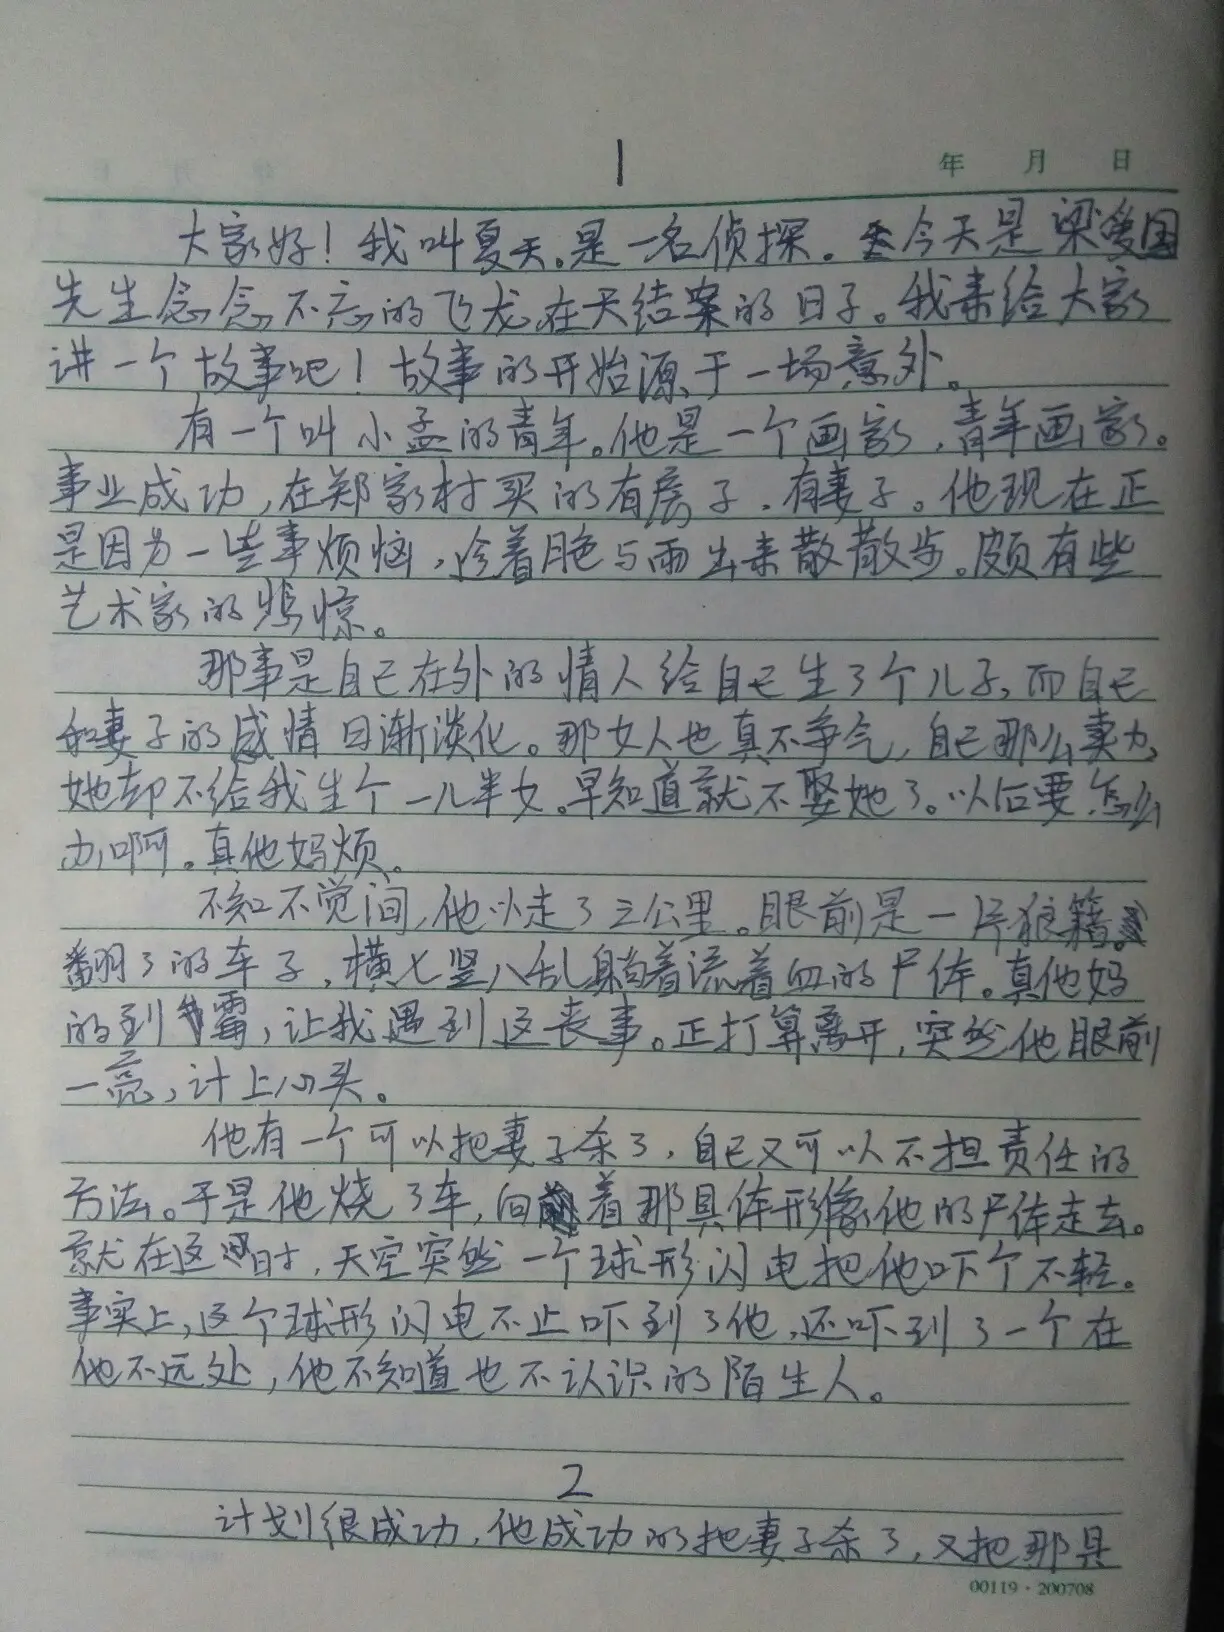 1
年 月 日
大家好！我叫夏天。是一名侦探。今天是梁爱国
先生念念不忘的飞龙在天结案的日子。我来给大家
讲一个故事吧！故事的开始源于一场意外。
有一个叫小孟的青年。他是一个画家，青年画家。
事业成功，在郑家村买的有房子，有妻子。他现在正
是因为一些事烦恼，冷着月色与雨出来散散步。颇有些
艺术家的惊。
那事是自己在外的情人给自己生了个儿子，而自己
和妻子的感情日渐淡化。那女人也真不争气，自己那么卖力，
她却不给我生个一儿半女。早知道就不娶她了。以后要怎么
办啊。真他妈烦。
不知不觉间，他以走了三公里。眼前是一片狼籍。
翻了的车子，横七竖八乱躺着流着血的尸体。真他妈
的到霉，让我遇到这丧事。正打算离开，突然他眼前
一亮，计上心头。
他有一个可以把妻子杀了，自己又可以不担责任的
方法。于是他烧了车，向着那具体形像他的尸体走去。
就在这时，天空突然一个球形闪电把他吓个不轻。
事实上，这个球形闪电不止吓到了他，还吓到了一个在
他不远处，他不知道也不认识的陌生人。
2
计划很成功，他成功的把妻子杀了，又把那具
00119·200708